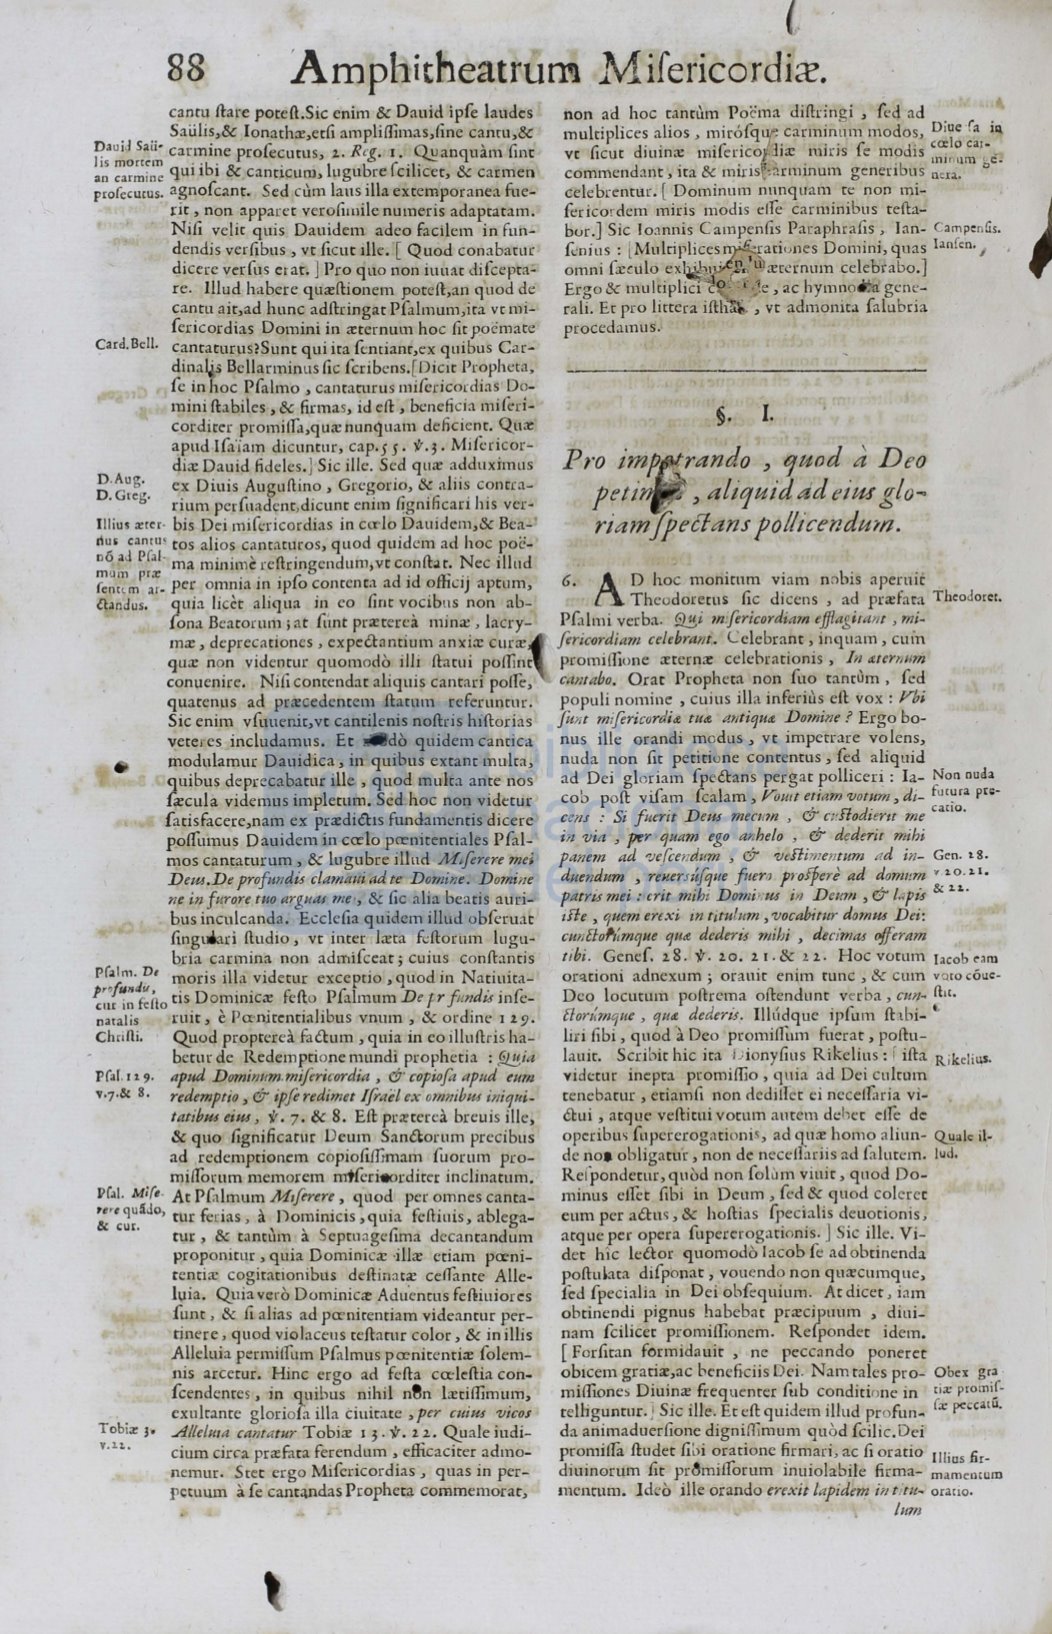 88 Amphitheatrum Misericordiæ.
cantu ſtare poteſt. Sic enim & Dauid ipſe laudes
Saülis, & Ionathæ, etſi ampliſſimas, ſine cantu, &
carmine proſecutus, 2. Reg. 1. Quanquàm ſint
qui ibi & canticum, lugubre ſcilicet, & carmen
agnoſcant. Sed cùm laus illa extemporanea fue-
rit, non apparet veroſimile numeris adaptatam.
Niſi velit quis Dauidem adeo facilem in fun-
dendis verſibus, vt ſicut ille. [ Quod conabatur
dicere verſus erat. ] Pro quo non iuuat diſcepta-
re. Illud habere quæſtionem poteſt, an quod de
cantu ait, ad hunc adſtringat Pſalmum, ita vt mi-
ſericordias Domini in æternum hoc ſit poëmate
cantaturus? Sunt qui ita ſentiant, ex quibus Car-
dinalis Bellarminus ſic ſcribens. [Dicit Propheta,
ſe in hoc Pſalmo, cantaturus miſericordias Do-
mini ſtabiles, & firmas, id eſt, beneficia miſeri-
corditer promiſſa, quæ nunquam deficient. Quæ
apud Iſaïam dicuntur, cap. 55. ℣. 3. Miſericor-
diæ Dauid fideles.] Sic ille. Sed quæ adduximus
ex Diuis Auguſtino, Gregorio, & aliis contra-
rium perſuadent, dicunt enim ſignificari his ver-
bis Dei miſericordias in cœlo Dauidem, & Bea-
tos alios cantaturos, quod quidem ad hoc poë-
ma minimè reſtringendum, vt conſtat. Nec illud
per omnia in ipſo contenta ad id officij aptum,
quia licèt aliqua in eo ſint vocibus non ab-
ſona Beatorum; at ſunt prætereà minæ, lacry-
mæ, deprecationes, expectantium anxiæ curæ,
quæ non videntur quomodò illi ſtatui poſſint
conuenire. Niſi contendat aliquis cantari poſſe,
quatenus ad præcedentem ſtatum referuntur.
Sic enim vſuuenit, vt cantilenis noſtris hiſtorias
veteres includamus. Et quidem cantica
modulamur Dauidica, in quibus extant multa,
quibus deprecabatur ille, quod multa ante nos
ſæcula videmus impletum. Sed hoc non videtur
ſatisfacere, nam ex prædictis fundamentis dicere
poſſumus Dauidem in cœlo pœnitentiales Pſal-
mos cantaturum, & lugubre illud Miſerere mei
Deus. De profundis clamaui ad te Domine. Domine
ne in furore tuo arguas me, & ſic alia beatis auri-
bus inculcanda. Eccleſia quidem illud obſeruat
ſingulari ſtudio, vt inter læta feſtorum lugu-
bria carmina non admiſceat; cuius conſtantis
moris illa videtur exceptio, quod in Natiuita-
tis Dominicæ feſto Pſalmum De profundis inſe-
ruit, è Pœnitentialibus vnum, & ordine 129.
Quod proptereà factum, quia in eo illuſtris ha-
betur de Redemptione mundi prophetia: Quia
apud Dominum miſericordia, & copioſa apud eum
redemptio, & ipſe redimet Iſraël ex omnibus iniqui-
tatibus eius, ℣. 7. & 8. Eſt prætereà breuis ille,
& quo ſignificatur Deum Sanctorum precibus
ad redemptionem copioſiſſimam ſuorum pro-
miſſorum memorem miſericorditer inclinatum.
At Pſalmum Miſerere, quod per omnes canta-
tur ferias, à Dominicis, quia feſtiuis, ablega-
tur, & tantùm à Septuageſima decantandum
proponitur, quia Dominicæ illæ etiam pœni-
tentiæ cogitationibus deſtinatæ ceſſante Alle-
luia. Quia verò Dominicæ Aduentus feſtiuiores
ſunt, & ſi alias ad pœnitentiam videantur per-
tinere, quod violaceus teſtatur color, & in illis
Alleluia permiſſum Pſalmus pœnitentiæ ſolem-
nis arcetur. Hinc ergo ad feſta cœleſtia con-
ſcendentes, in quibus nihil non lætiſſimum,
exultante glorioſa illa ciuitate, per cuius vicos
Alleluia cantatur Tobiæ 13. ℣. 22. Quale iudi-
cium circa præfata ferendum, efficaciter admo-
nemur. Stet ergo Miſericordias, quas in per-
petuum à ſe cantandas Propheta commemorat,
Dauid Saü-
lis mortem
an carmine
proſecutus.
Card. Bell.
D. Aug.
D. Greg.
Illius æter-
nus cantus
nō ad Pſal-
mum præ
ſentem ar-
ctandus.
Pſalm. De
profundis,
cur in feſto
natalis
Chriſti.
Pſal. 129.
v. 7. & 8.
Pſal. Miſe-
rere quādo,
& cur.
Tobiæ 3.
v. 22.
non ad hoc tantùm Poëma diſtringi, ſed ad
multiplices alios, miróſque carminum modos,
vt ſicut diuinæ miſericordiæ miris ſe modis
commendant, ita & miris carminum generibus
celebrentur. [ Dominum nunquam te non mi-
ſericordem miris modis eſſe carminibus teſta-
bor.] Sic Ioannis Campenſis Paraphraſis, Ian-
ſenius: [Multiplices miſerationes Domini, quas
omni ſæculo æternum celebrabo.]
Ergo & multiplici , ac hymnodia gene-
rali. Et pro littera iſthæc, vt admonita ſalubria
procedamus.
§. I.
Pro impetrando, quod à Deo
petimus, aliquid ad eius glo-
riam ſpectans pollicendum.
6. AD hoc monitum viam nobis aperuit
Theodoretus ſic dicens, ad præfata
Pſalmi verba. Qui miſericordiam efflagitant, mi-
ſericordiam celebrant. Celebrant, inquam, cum
promiſſione æternæ celebrationis, In æternum
cantabo. Orat Propheta non ſuo tantùm, ſed
populi nomine, cuius illa inferiùs eſt vox: Vbi
ſunt miſericordiæ tuæ antiquæ Domine? Ergo bo-
nus ille orandi modus, vt impetrare volens,
nuda non ſit petitione contentus, ſed aliquid
ad Dei gloriam ſpectans pergat polliceri: Ia-
cob poſt viſam ſcalam, Vouit etiam votum, di-
cens: Si fuerit Deus mecum, & cuſtodierit me
in via, per quam ego anhelo, & dederit mihi
panem ad veſcendum, & veſtimentum ad in-
duendum, reuerſúſque fuero proſperè ad domum
patris mei: erit mihi Dominus in Deum, & lapis
iſte, quem erexi in titulum, vocabitur domus Dei:
cunctorúmque quæ dederis mihi, decimas offeram
tibi. Geneſ. 28. ℣. 20. 21. & 22. Hoc votum
orationi adnexum; orauit enim tunc, & cum
Deo locutum poſtrema oſtendunt verba, cun-
ctorúmque, quæ dederis. Illúdque ipſum ſtabi-
liri ſibi, quod à Deo promiſſum fuerat, poſtu-
lauit. Scribit hic ita Dionyſius Rikelius: [ iſta
videtur inepta promiſſio, quia ad Dei cultum
tenebatur, etiamſi non dediſſet ei neceſſaria vi-
ctui, atque veſtitui votum autem debet eſſe de
operibus ſupererogationis, ad quæ homo aliun-
de non obligatur, non de neceſſariis ad ſalutem.
Reſpondetur, quòd non ſolùm vinit, quod Do-
minus eſſet ſibi in Deum, ſed & quod coleret
eum per actus, & hoſtias ſpecialis deuotionis,
atque per opera ſupererogationis. ] Sic ille. Vi-
det hic lector quomodò Iacob ſe ad obtinenda
poſtulata diſponat, vouendo non quæcumque,
ſed ſpecialia in Dei obſequium. At dicet, iam
obtinendi pignus habebat præcipuum, diui-
nam ſcilicet promiſſionem. Reſpondet idem.
[ Forſitan formidauit, ne peccando poneret
obicem gratiæ, ac beneficiis Dei. Nam tales pro-
miſſiones Diuinæ frequenter ſub conditione in
telliguntur. ] Sic ille. Et eſt quidem illud profun-
da animaduerſione digniſſimum quòd ſcilic. Dei
promiſſa ſtudet ſibi oratione firmari, ac ſi oratio
diuinorum ſit promiſſorum inuiolabile firma-
mentum. Ideò ille orando erexit lapidem in titu-
lum
cœlo car-
minum ge-
nera.
Campenſis.
Ianſen.
Theodoret.
Non nuda
futura pre-
catio.
Gen. 28.
v. 20. 21.
& 22.
Iacob eam
voto cōue-
ſtit.
Rikelius.
Quale il-
lud.
Obex gra
tiæ promiſ-
ſæ peccatū.
Illius fir-
mamentum
oratio.